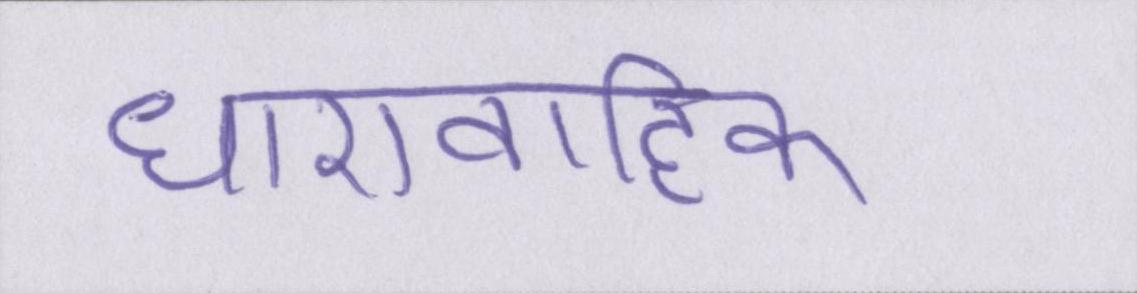 धारावाहिक